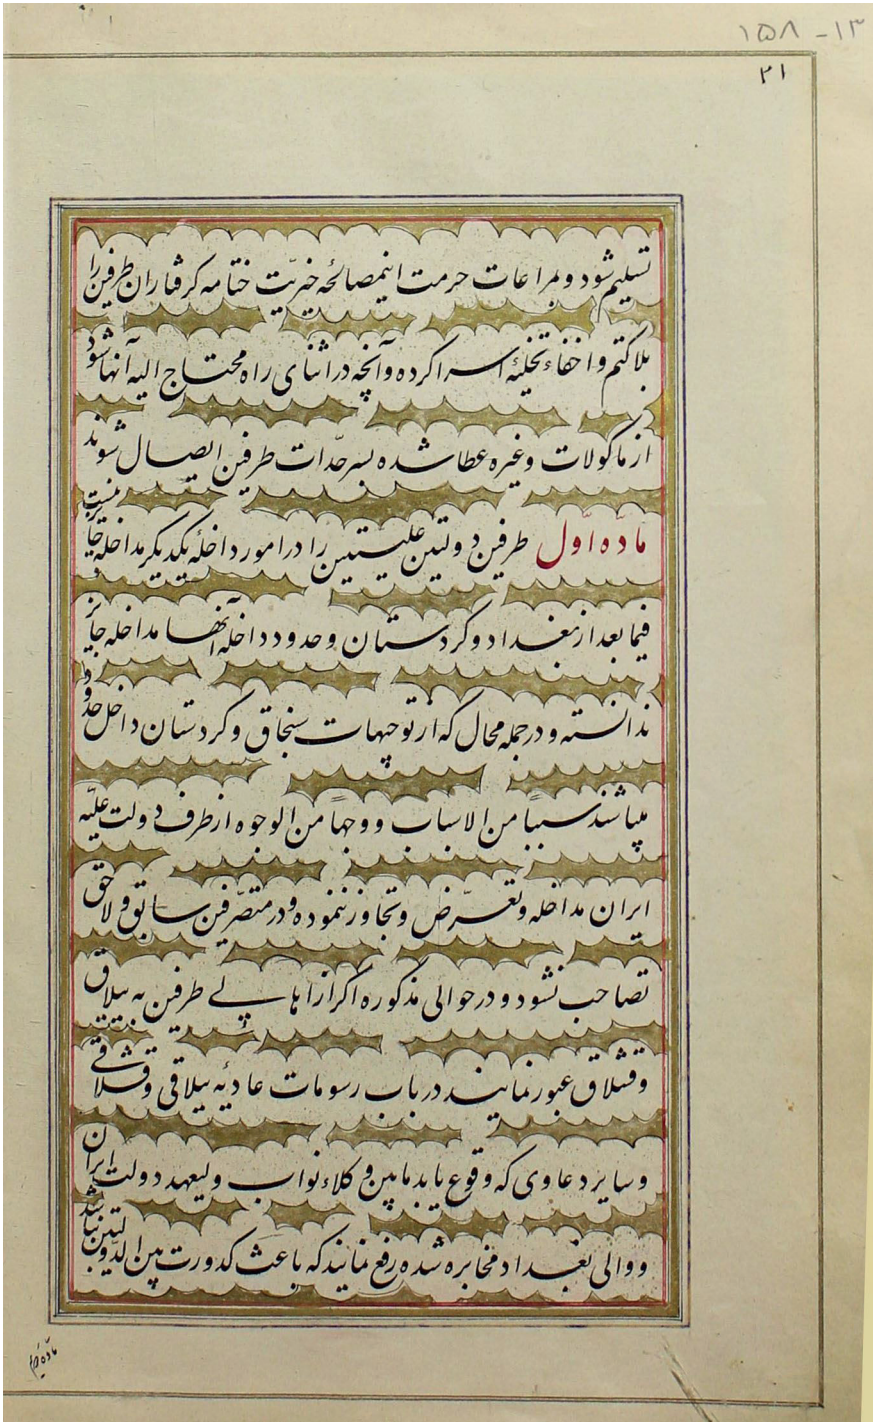 ۱۵۸ - ۱۳
۲۱
تسلیم شود و بمراعات حرمت اینمصالحه خیریّت ختامه گرفتاران طرفین را
بلاکتم و اخفاء تخلیهٔ اسرا کرده و آنچه در اثنای راه محتاج الیه آنها شود
از ماکولات و غیره عطا شده بسرحدّات طرفین ایصال شوند
مادّه اوّل طرفین دولتین علیتین را در امور داخلهٔ یکدیگر مداخله جایز نیست
فیما بعد از بغداد و کردستان و حدود داخله آنها مداخله جایز
ندانسته و در جمله محال که از توجیهات سنجاق و کردستان داخل حدود
میباشند سبباً من الاسباب و وجهاً من الوجوه از طرف دولت علیّه
ایران مداخله و تعرّض و تجاوز ننموده و در متصرّفین سابق و لاحق
تصاحب نشود و در حوالی مذکوره اگر از اهالی طرفین به ییلاق
و قشلاق عبور نمایند در باب رسومات عادیّه ییلاقی و قشلاقی
و سایر دعاوی که وقوع یابد مابین وکلاء نواب ولیعهد دولت ایران
و والی بغداد مخابره شده رفع نمایند که باعث کدورت بین الدّولتین نباشد
مادّه دویم